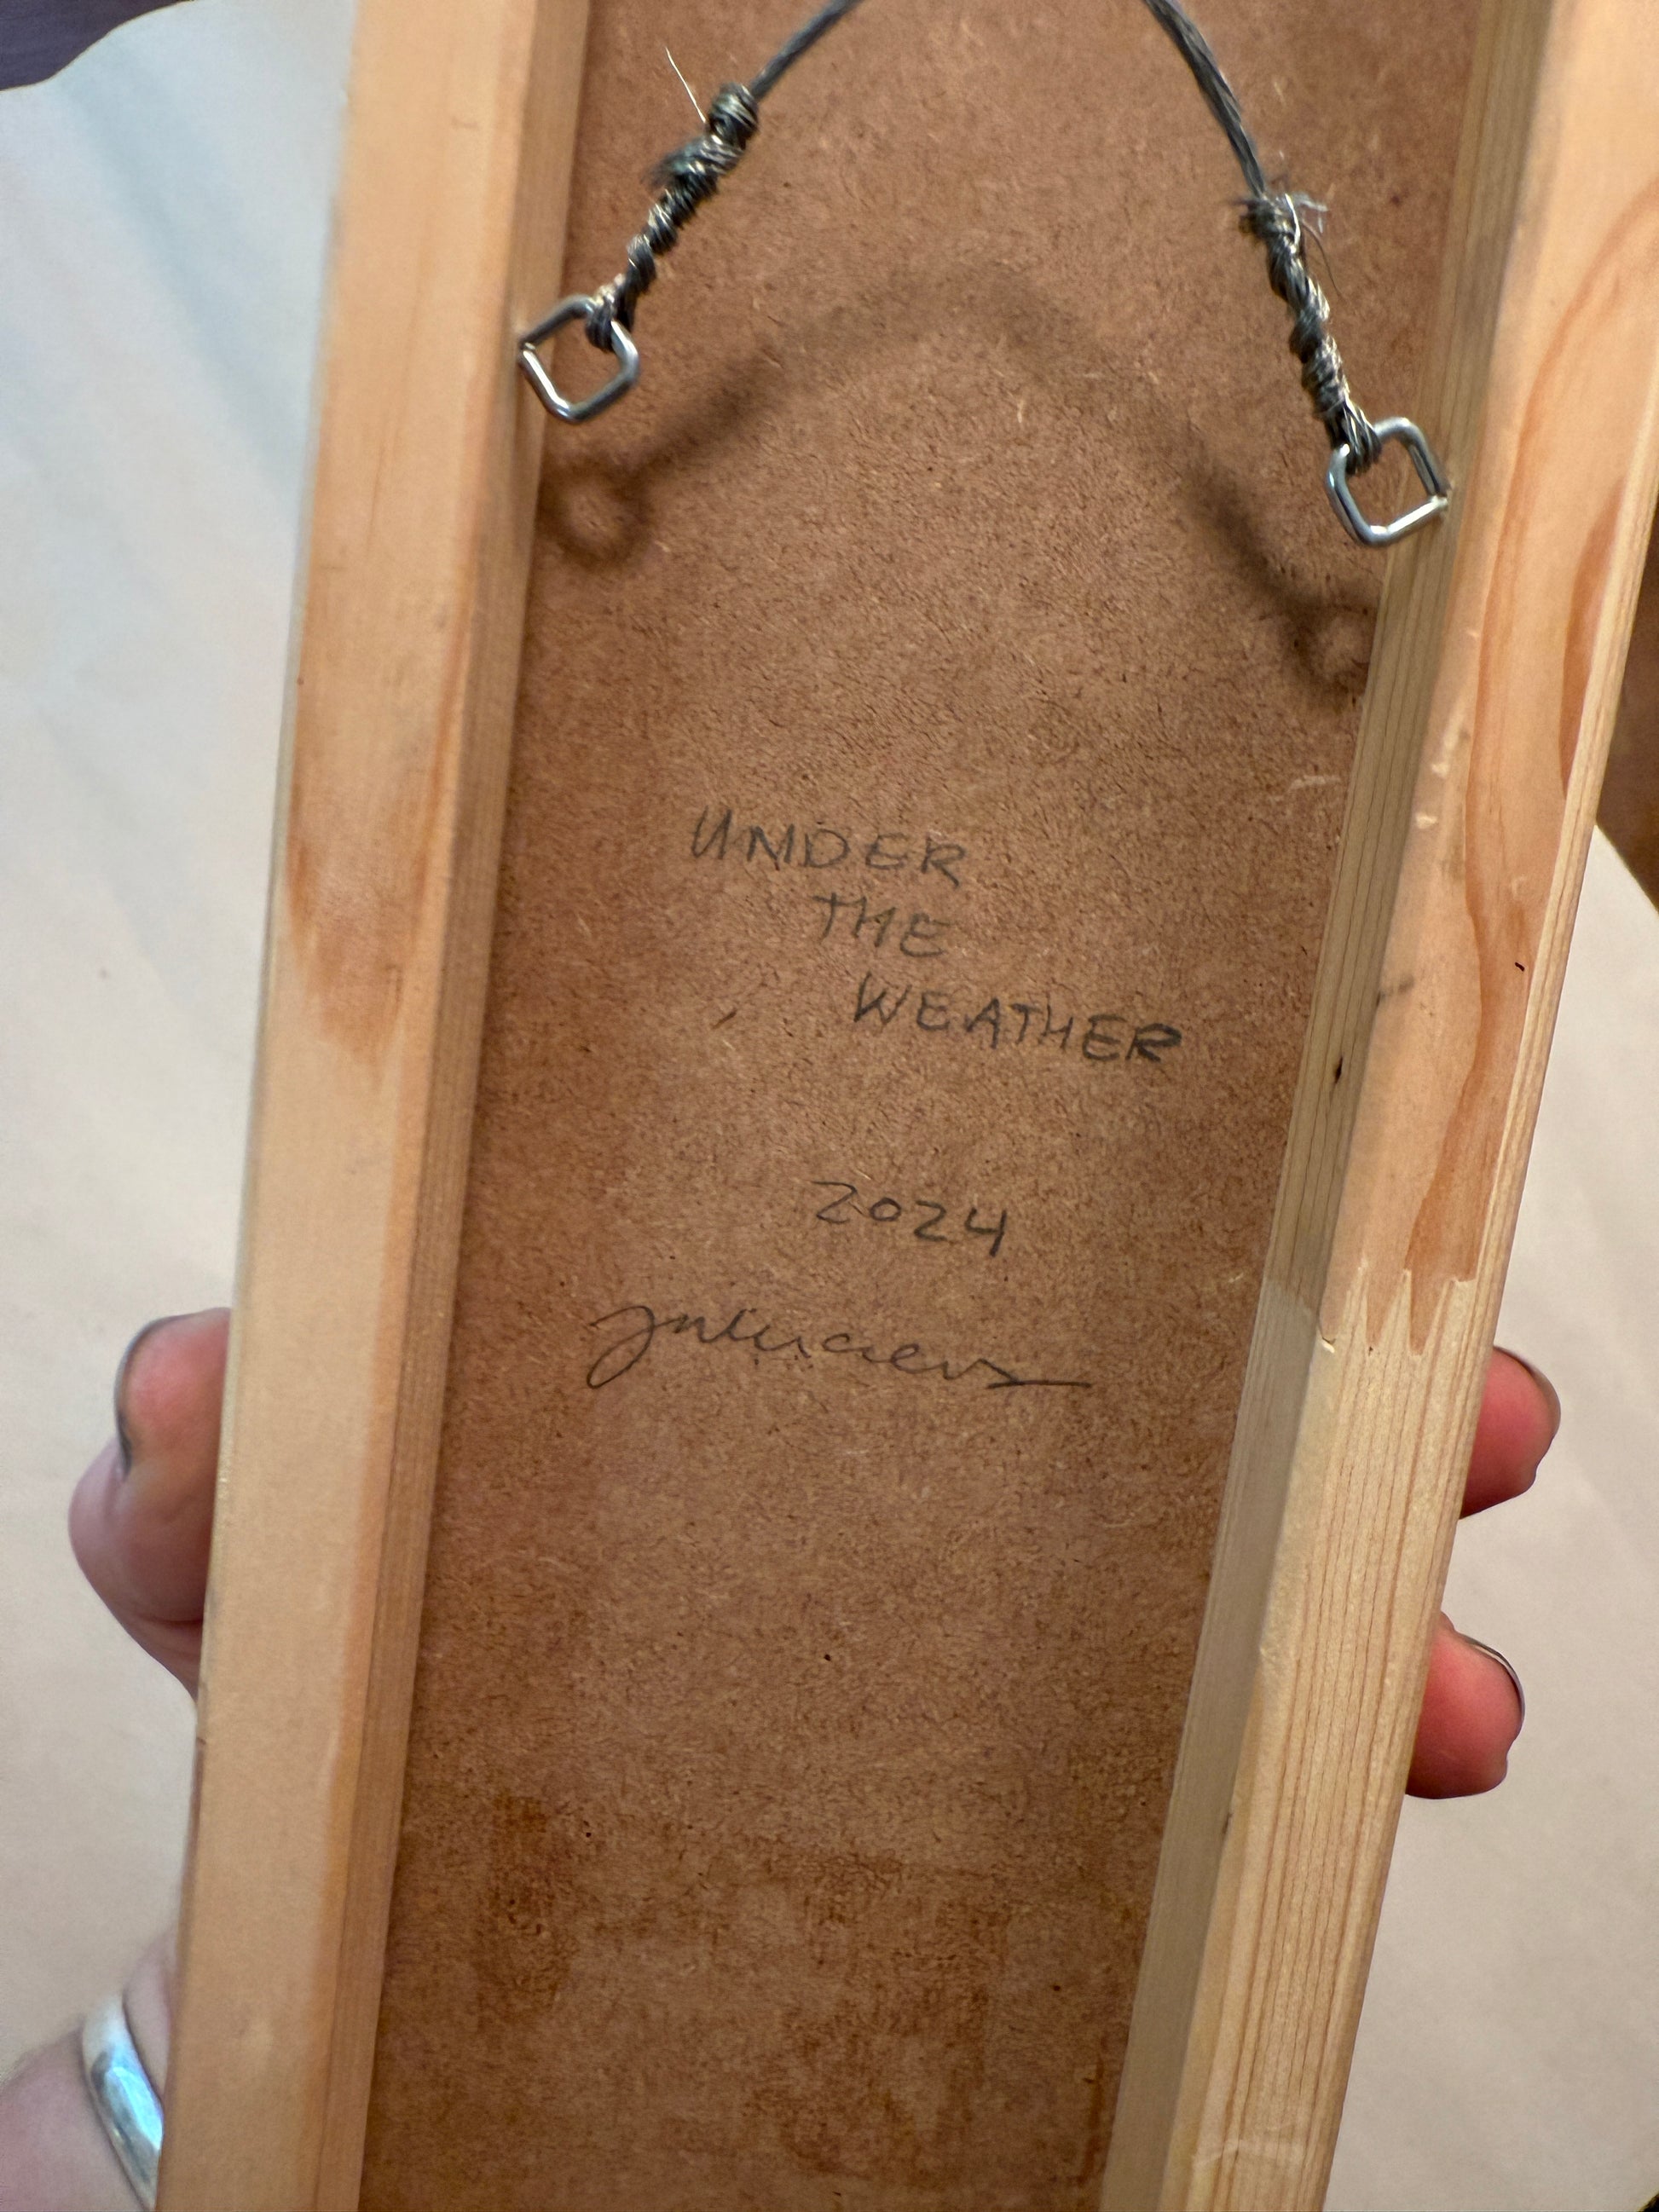 UNDER
THE
WEATHER
2024